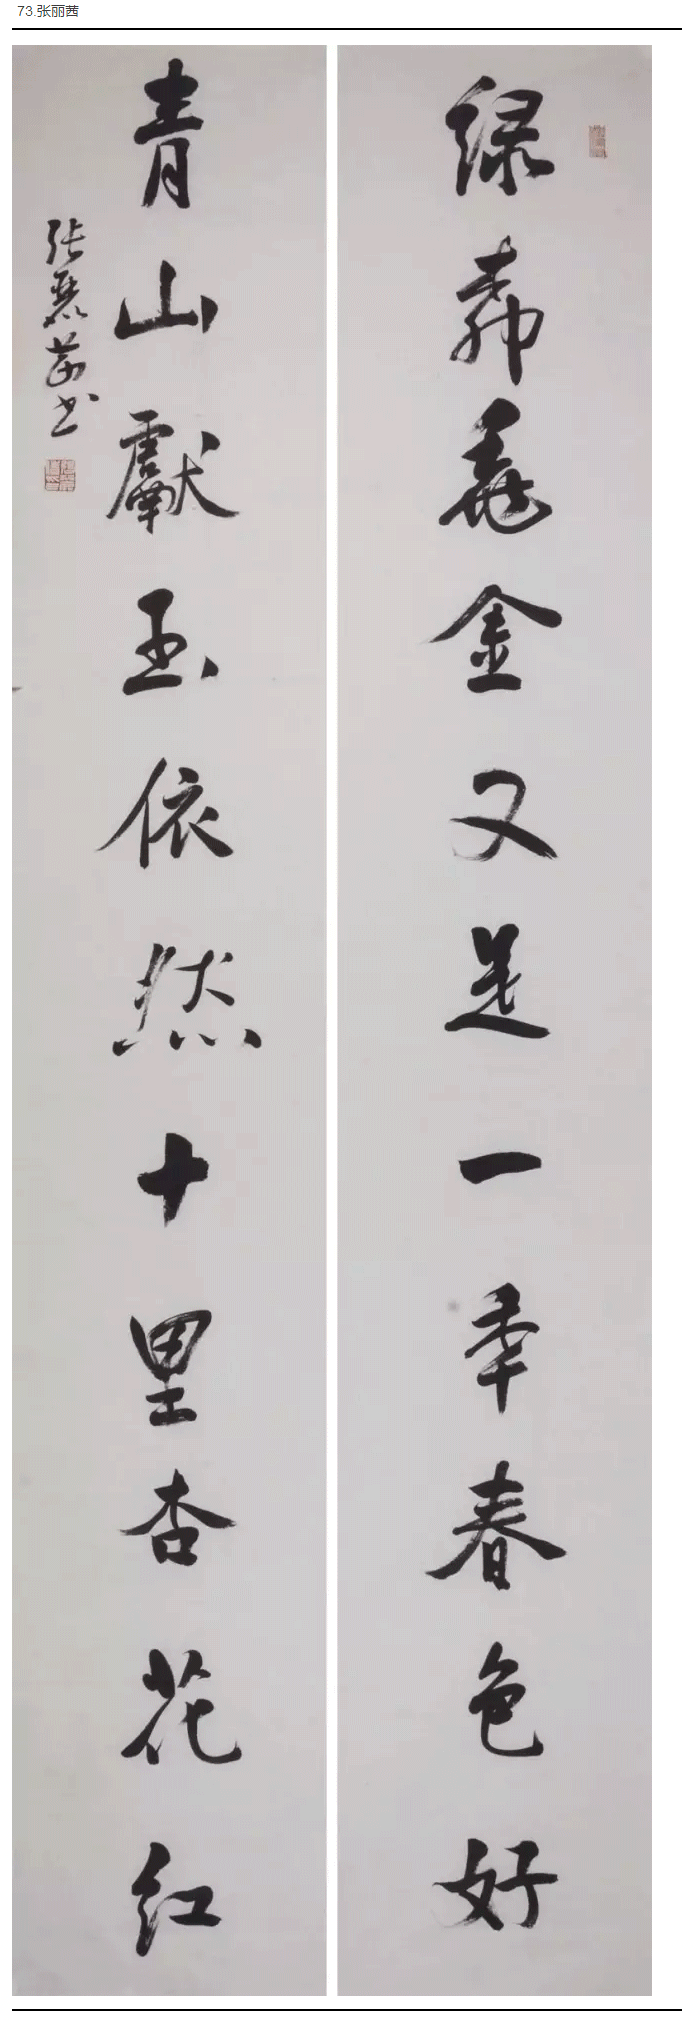 73.张丽茜
绿桺金又是一秊春色好
青山獻玉依然十里杏花红
张麗茜书